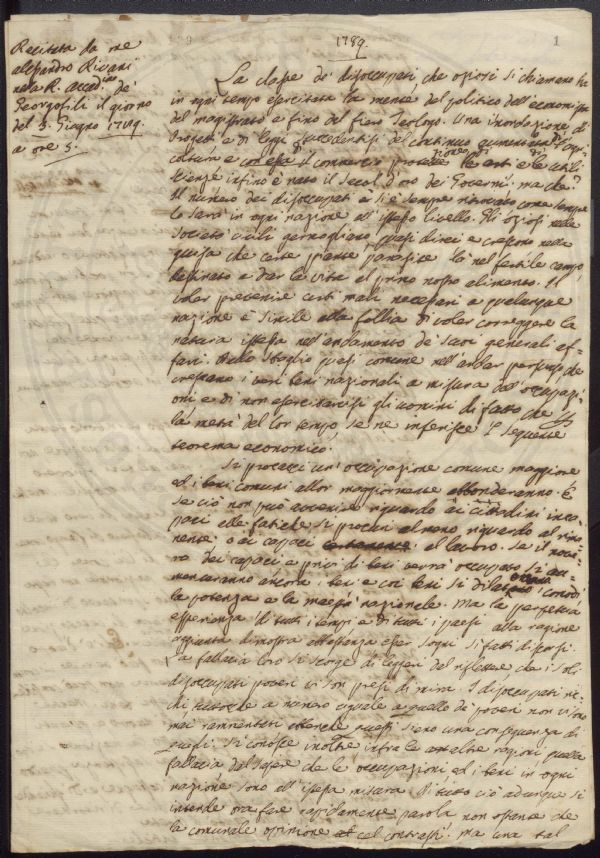 1789.
1
Recitata da me
Alessandro Rivani
nella R. Accad.
Georgofili il giorno
del 3. Giugno 1789.
a ore 5.
La classe de' disoccupati, che oziosi si chiamano ha
in ogni tempo esercitata la mente del politico dell'economista
del magistrato e fino del fiero Teologo. Una inondazione di
Progetti e di leggi succedentisi del continuo
coltura e con essa il commercio le arti e le utili
scienze infino è nato il secol d'oro dei Governi: ma che?
Il numero dei disoccupati si è sempre ritrovato come sempre
lo sarà in ogni nazione all'istesso livello. Gli oziosi nelle
società civili germogliano quasi direi e crescono nella
guisa che certe piante parasite là nel fertile campo
destinato a dar la vita al primo nostro alimento. Il
voler prevenire certi mali necessari a qualunque
nazione è simile alla follia di voler correggere la
natura istessa nell'andamento de' suoi generali ef-
fetti. Dallo sbaglio quasi comune nell'andar persuasi che
crescano i veri beni nazionali a misura dell'occupazi-
oni e di non esercitarvisi gli uomini di fatto che
la metà del lor tempo, se ne inferisce il seguente
teorema economico.
Si procacci un'occupazione comune maggiore
ed i beni comuni allor maggiormente abbonderanno. E
se ciò non può avvenire riguardo ai cittadini inca-
paci alle fatiche si procuri almeno riguardo al rima-
nente o ai capaci al lavoro. Se il nume-
ro dei capaci e privi di beni verrà occupato si au-
menteranno ancora i beni e coi beni si dilaterà
la potenza e la maestà nazionale. Ma la perpetua
esperienza di tutti i tempi e di tutti i paesi alla ragione
aggiunta dimostra abbastanza esser sogni sì fatti discorsi.
La fallacia loro si scorge di leggeri dal riflettere, che i soli
disoccupati poveri vi son presi di mira. I disoccupati ric-
chi tuttoche a numero uguale a quello de' poveri non vi son
mai rammentati questi sieno una conseguenza di
quegli. Si conosce inoltre infra le ragioni, quella
fallacia dal sapere che le occupazioni ed i beni in ogni
nazione sono all'istessa misura. Di tutto ciò adunque si
intende ora fare rapidamente parola non ostante che
la comunale opinione cel contrasti. Ma una tal